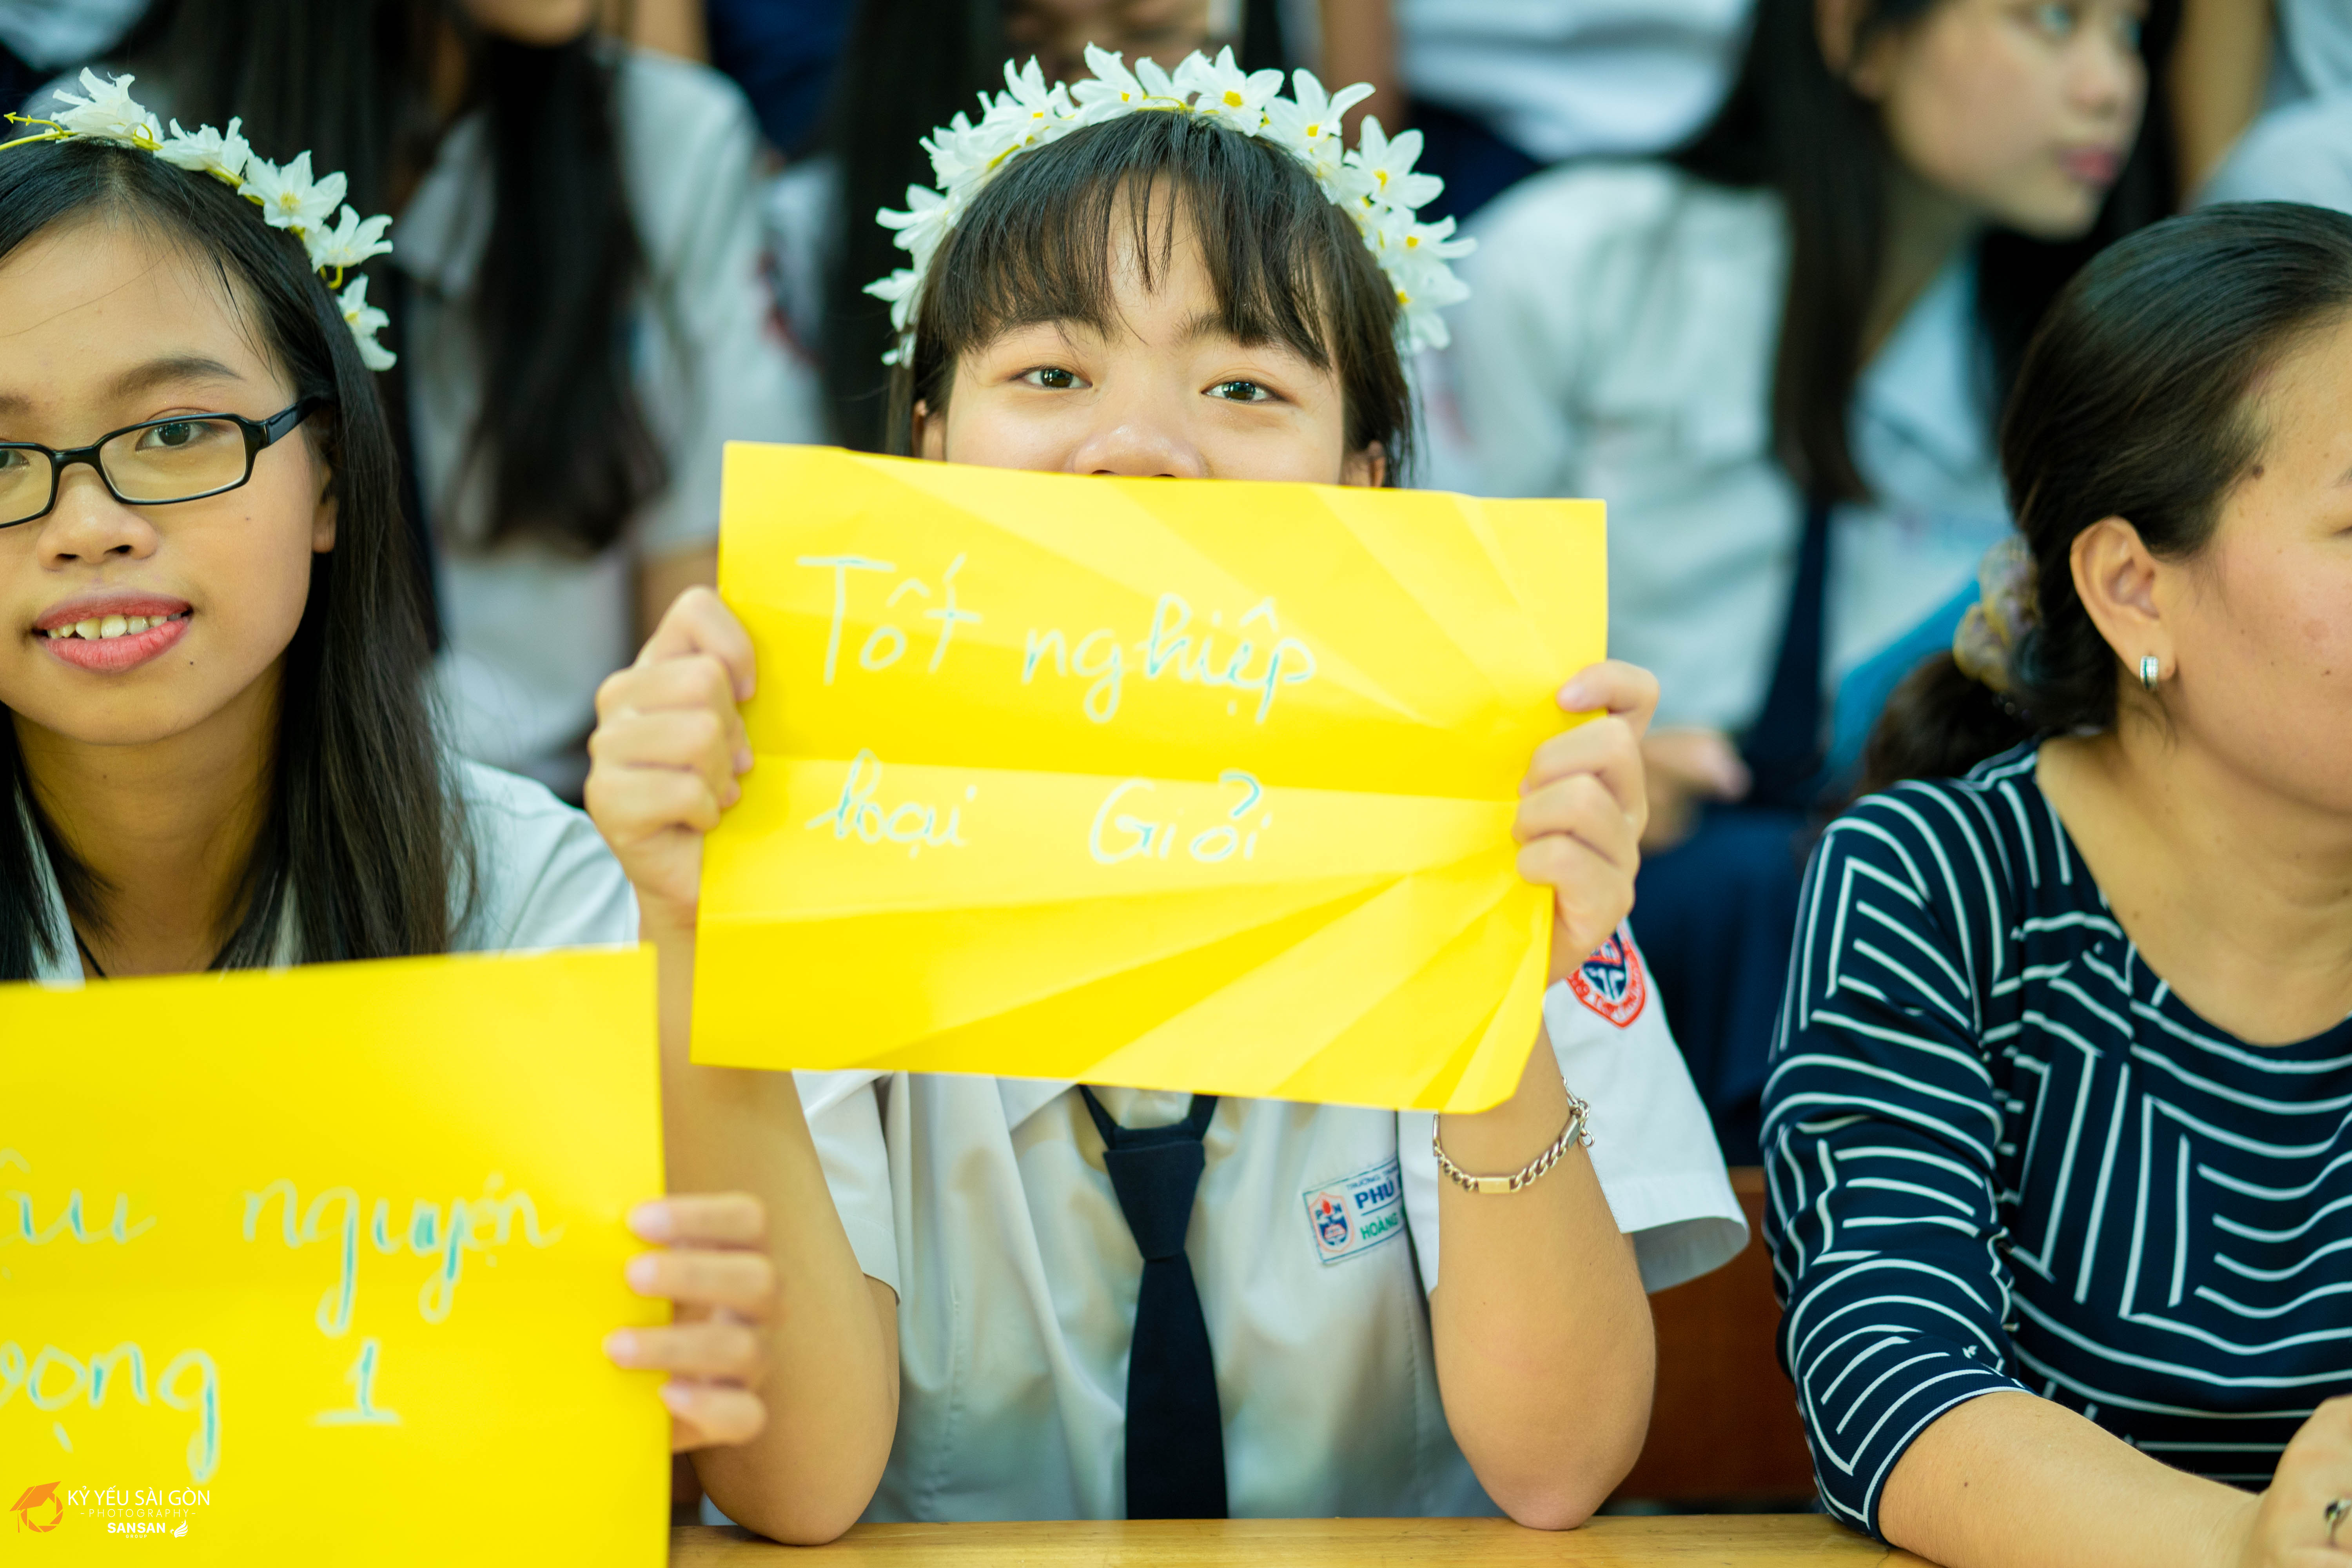 Tốt nghiệp
loại Giỏi
ậu nguyện
ọng 1
PHÚ
HOÀNG
KỶ YẾU SÀI GÒN
-PHOTOGRAPHY-
SANSAN
GROUP